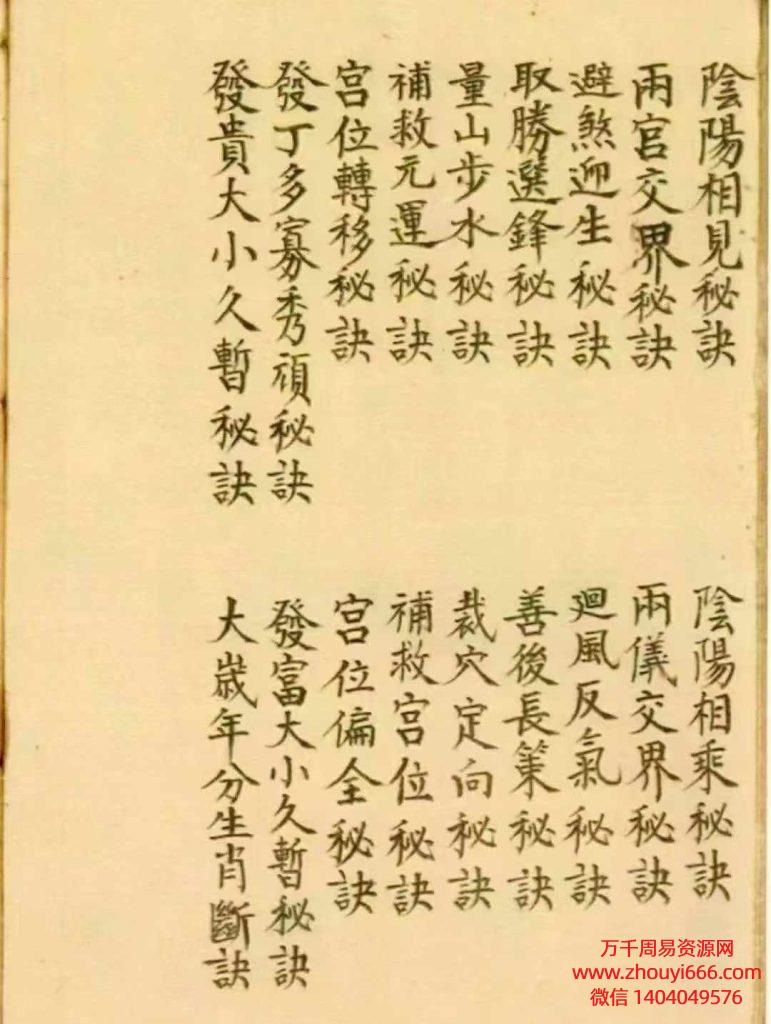 陰陽相見秘訣
陰陽相乘秘訣
兩宮交界秘訣
兩儀交界秘訣
避煞迎生秘訣
廻風反氣秘訣
取勝選鋒秘訣
善後長策秘訣
量山步水秘訣
裁穴定向秘訣
補救元運秘訣
補救宮位秘訣
宮位轉移秘訣
宮位偏全秘訣
發丁多寡秀頑秘訣
發富大小久暫秘訣
發貴大小久暫秘訣
大歲年分生肖斷訣
万千周易资源网
www.zhouyi666.com
微信 1404049576